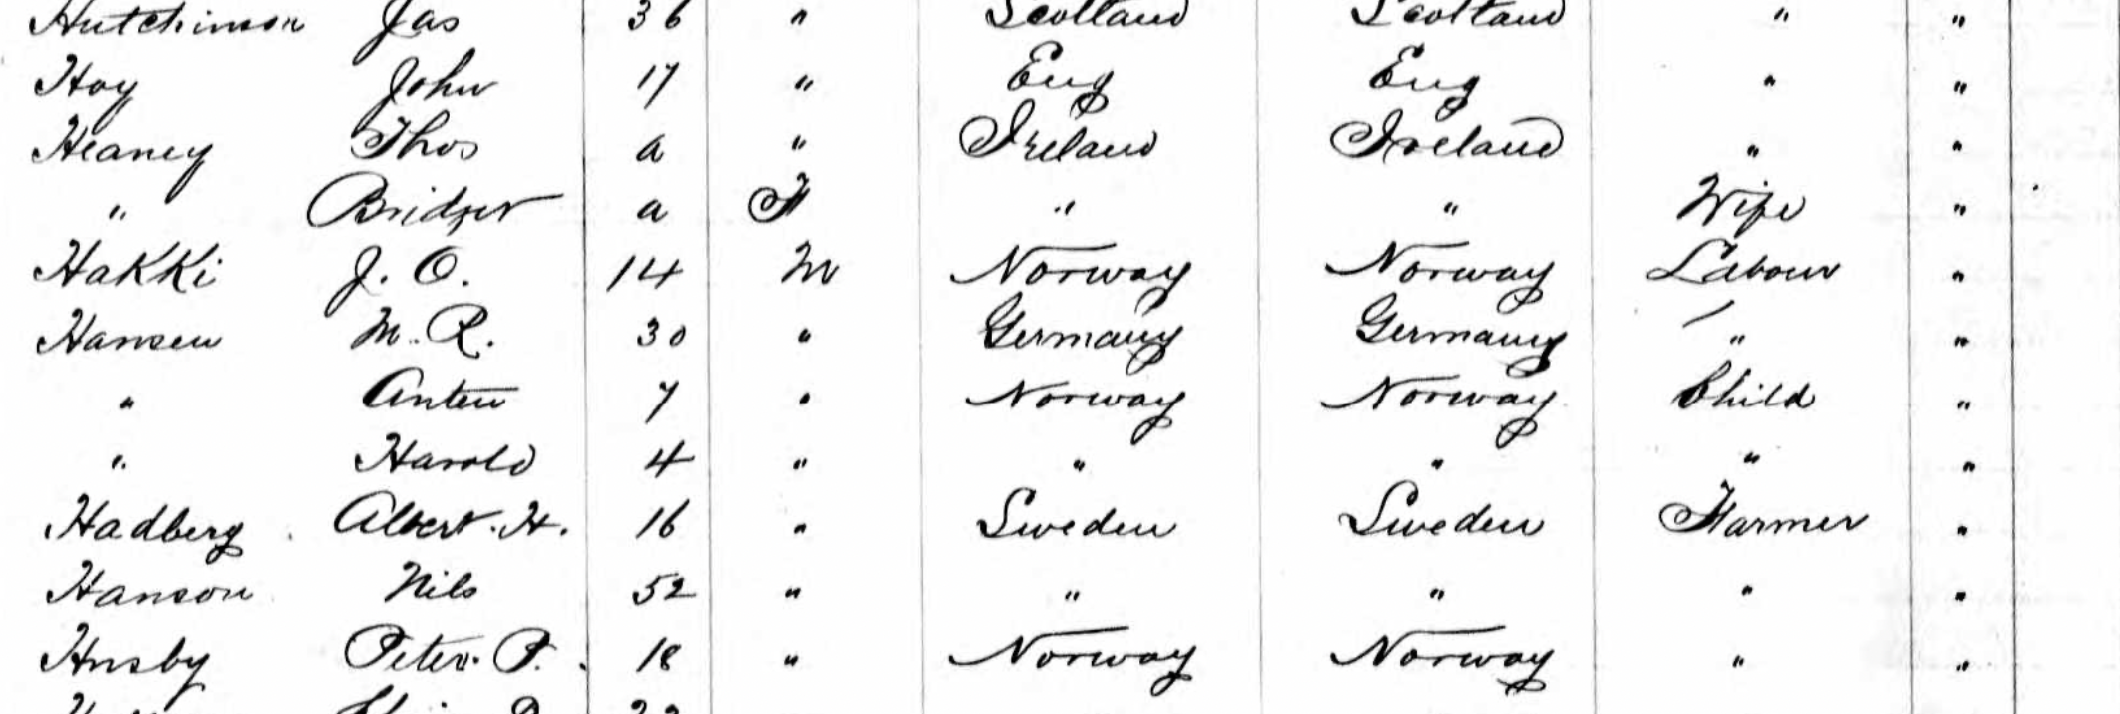 Hutchinson Jas 36 " Scotland Scotland " "
Hoy John 17 " Eng Eng " "
Heaney Thos a " Ireland Ireland " "
" Bridget a F " " Wife "
Hakki J. O. 14 M Norway Norway Labour "
Hansen M. R. 30 " Germany Germany " "
" Anten 7 " Norway Norway Child "
" Harold 4 " " " " "
Hadberg Albert. H. 16 " Sweden Sweden Farmer "
Hanson Nils 52 " " " " "
Husby Peter. P. 18 " Norway Norway " "